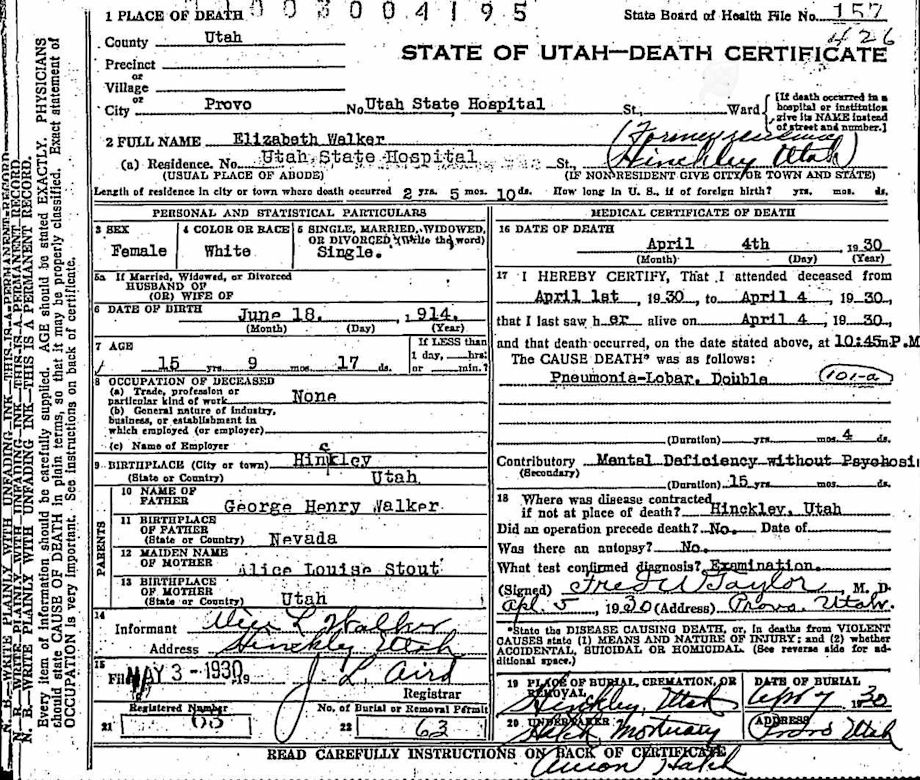 1 PLACE OF DEATH
11003004195
State Board of Health File No. 157
426
County Utah
STATE OF UTAH—DEATH CERTIFICATE
Precinct
or
Village
or
City Provo No. Utah State Hospital St., Ward
[If death occurred in a hospital or institution give its NAME instead of street and number.]
2 FULL NAME Elizabeth Walker
(Former residence
(a) Residence. No. Utah State Hospital St., Hinckley Utah)
(USUAL PLACE OF ABODE) (IF NON-RESIDENT GIVE CITY OR TOWN AND STATE)
Length of residence in city or town where death occurred 2 yrs. 5 mos. 10 ds. How long in U. S., if of foreign birth? yrs. mos. ds.
PERSONAL AND STATISTICAL PARTICULARS
3 SEX
Female
4 COLOR OR RACE
White
5 SINGLE, MARRIED, WIDOWED, OR DIVORCED (Write the word)
Single.
5a If Married, Widowed, or Divorced
HUSBAND OF
(OR) WIFE OF
6 DATE OF BIRTH June 18. 1914.
(Month) (Day) (Year)
7 AGE
15 yrs. 9 mos. 17 ds.
If LESS than
1 day, hrs.
or min.?
8 OCCUPATION OF DECEASED
(a) Trade, profession or
particular kind of work None
(b) General nature of industry,
business, or establishment in
which employed (or employer)
(c) Name of Employer
c
9 BIRTHPLACE (City or town) Hinkley
(State or Country) Utah
PARENTS
10 NAME OF
FATHER George Henry Walker
11 BIRTHPLACE
OF FATHER
(State or Country) Nevada
12 MAIDEN NAME
OF MOTHER Alice Louise Stout
13 BIRTHPLACE
OF MOTHER
(State or Country) Utah
14
Informant Alice L Walker
Address Hinckley Utah
15
Filed MAY 3 - 1930 19
J L Aird
Registrar
Registered Number
21 63
No. of Burial or Removal Permit
22 63
MEDICAL CERTIFICATE OF DEATH
16 DATE OF DEATH
April 4th 1930
(Month) (Day) (Year)
17 I HEREBY CERTIFY, That I attended deceased from
April 1st, 1930, to April 4, 1930,
that I last saw her alive on April 4, 1930,
and that death occurred, on the date stated above, at 10:45m P.M
The CAUSE DEATH* was as follows:
Pneumonia-Lobar. Double 101-a
(Duration) yrs. mos. 4 ds.
Contributory Mental Deficiency without Psychosi
(Secondary)
(Duration) 15 yrs. mos. ds.
18 Where was disease contracted
if not at place of death? Hinckley, Utah
Did an operation precede death? No. Date of
Was there an autopsy? No.
What test confirmed diagnosis? Examination.
(Signed) Fred W Taylor M. D.
Apl. 5, 1930 (Address) Provo, Utah.
*State the DISEASE CAUSING DEATH, or, in deaths from VIOLENT
CAUSES state (1) MEANS AND NATURE OF INJURY; and (2) whether
ACCIDENTAL, SUICIDAL OR HOMICIDAL. (See reverse side for additional space.)
19 PLACE OF BURIAL, CREMATION, OR
REMOVAL
Hinckley, Utah
DATE OF BURIAL
Apr 7 1930
20 UNDERTAKER
Hatch Mortuary
ADDRESS
Provo Utah
READ CAREFULLY INSTRUCTIONS ON BACK OF CERTIFICATE
Anson Hatch
N. B.—WRITE PLAINLY WITH UNFADING INK—THIS IS A PERMANENT RECORD.
Every item of information should be carefully supplied. AGE should be stated EXACTLY. PHYSICIANS
should state CAUSE OF DEATH in plain terms, so that it may be properly classified. Exact statement of
OCCUPATION is very important. See instructions on back of certificate.